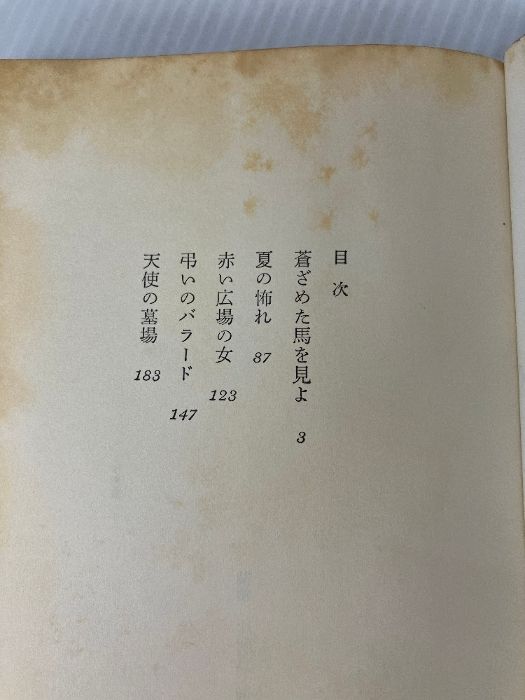 目次
蒼ざめた馬を見よ 3
夏の怖れ 87
赤い広場の女 123
弔いのバラード 147
天使の墓場 183